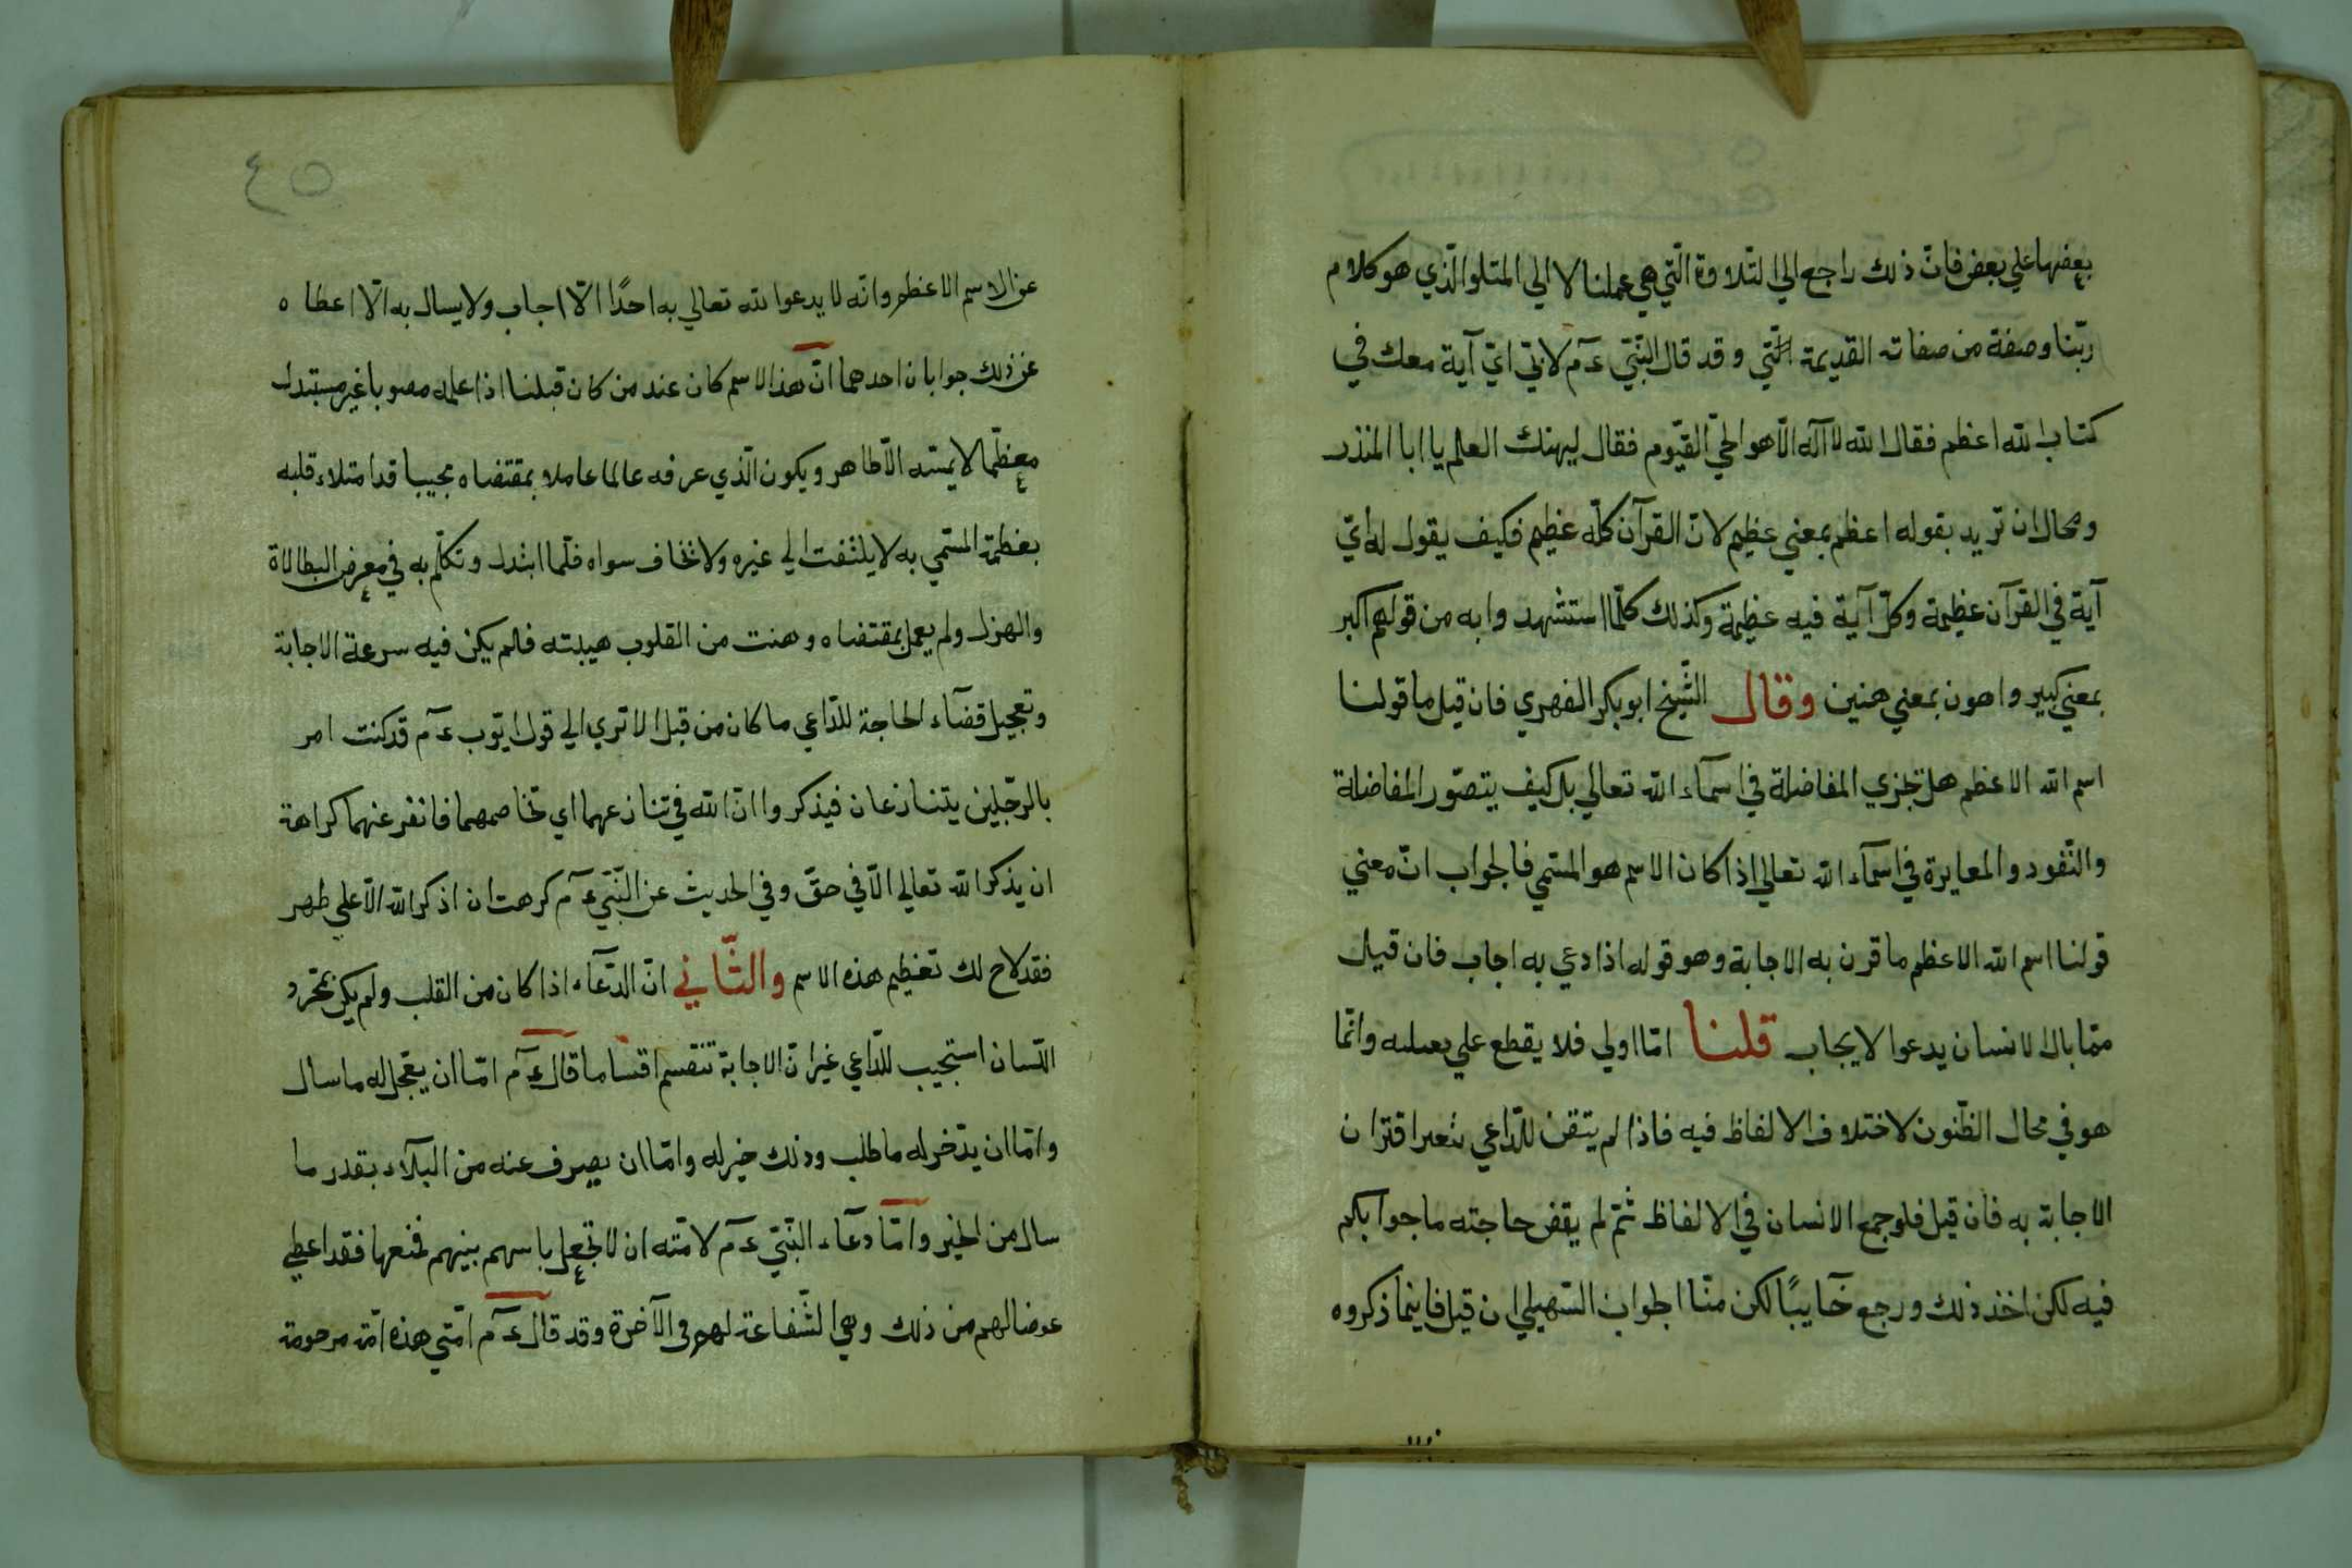 بعضها علي بعض فانّ ذلك راجع الي التلاوة الّتي هي عملنا لا الي المتلو الّذي هو كلام
ربّنا وصفة من صفاته القديمة الّتي وقد قال النّبيّ عۤم لابيّ ايّ آية معك في
كتاب الله اعظم فقال الله لا آله الّا هو الحيّ القيّوم فقال ليهنك العلم يا ابا المنذر
ومحال ان تريد بقوله اعظم بمعني عظيم لانّ القرآن كلّه عظيم فكيف يقول له ايّ
آية في القرآن عظيمة وكلّ آية فيه عظيمة وكذلك كلّما استشهدوا به من قولهم اكبر
بمعني كبير واهون بمعني هنين وقال الشّيخ ابو بكر الفهري فان قيل ما قولنا
اسم الله الاعظم هل تجزي المفاضلة في اسمآء الله تعالي بل كيف يتصوّر المفاضلة
والنّفود والمعايرة في اسمآء الله تعالي اذا كان الاسم هو المسّمي فالجواب انّ معني
قولنا اسم الله الاعظم ما قرن به الاجابة وهو قوله اذا دعي به اجاب فان قيل
ممّا بال الانسان يدعوا لا يجاب قلنا امّا اولي فلا يقطع علي وانّما
هو في محال الظّنون لاختلاف الالفاظ فيه فاذا لم يتقن للدّاعي اقتران
الاجابة به فان قيل فلو جمع الانسان في الالفاظ ثمّ لم يقض حاجته ما جوابكم
فيه لكن اخذ ذلك ورجع خآيبًا لكن منّا الجواب السّهيلي ان قيل فاينما ذكروه
٤٥
عن الاسم الاعظم وانّه لا يدعوا الله تعالي به احدًا الّا اجاب ولا يسال به الّا اعطاه
عن ذلك جوابان احدهما انّ هذا الاسم كان عند من كان قبلنا اذا علمه مصوبا غير مستبدل
معظّما لا يمسّه الّا طاهر ويكون الّذي عرفه عالما عاملا بمقتضاه مجيبا قد امتلاء قلبه
بعظمة المسّمي به لا يلتفت الي غيره ولا تخاف سواه فلّما ابتدل وتكلّم به في معرض البطالاة
والهزل ولم يعمل بمقتضاه وهنت من القلوب هيبته فلم يكن فيه سرعة الاجابة
وتعجيل قضآء الحاجة للدّاعي ما كان من قبل الا تري الي قول ايّوب عۤم قد كنت امر
بالرّجلين يتنازعان فيذكروا انّ الله في تنازعهما اي تخاصمهما فانفر عنهما كراهة
ان يذكر الله تعالي الّا في حقّ وفي الحديث عن النّبيّ عۤم كرهت ان اذكر الله الّا علي طهر
فقد لاح لك تعظيم هذه الاسم والثّاني انّ الدّعآء اذا كان من القلب ولم يكن بمجّرد
اللّسان استجيب للدّاعي غير انّ الاجابة تنقسم اقساما قال عۤم امّا ان يعّجل له ما سأل
وامّا ان يدّخر له ما طلب وذلك خير له وامّا ان يصرف عنه من البلآء بقدر ما
سال من الخير وامّا دعآء النّبيّ عۤم لامّته ان لا تجعل باسهم بينهم فمنعها فقد اعطي
عوضا لهم من ذلك وهي الشّفاعة لهم في الآخرة وقد قال عۤم امّتي هذه امّة مرحومة